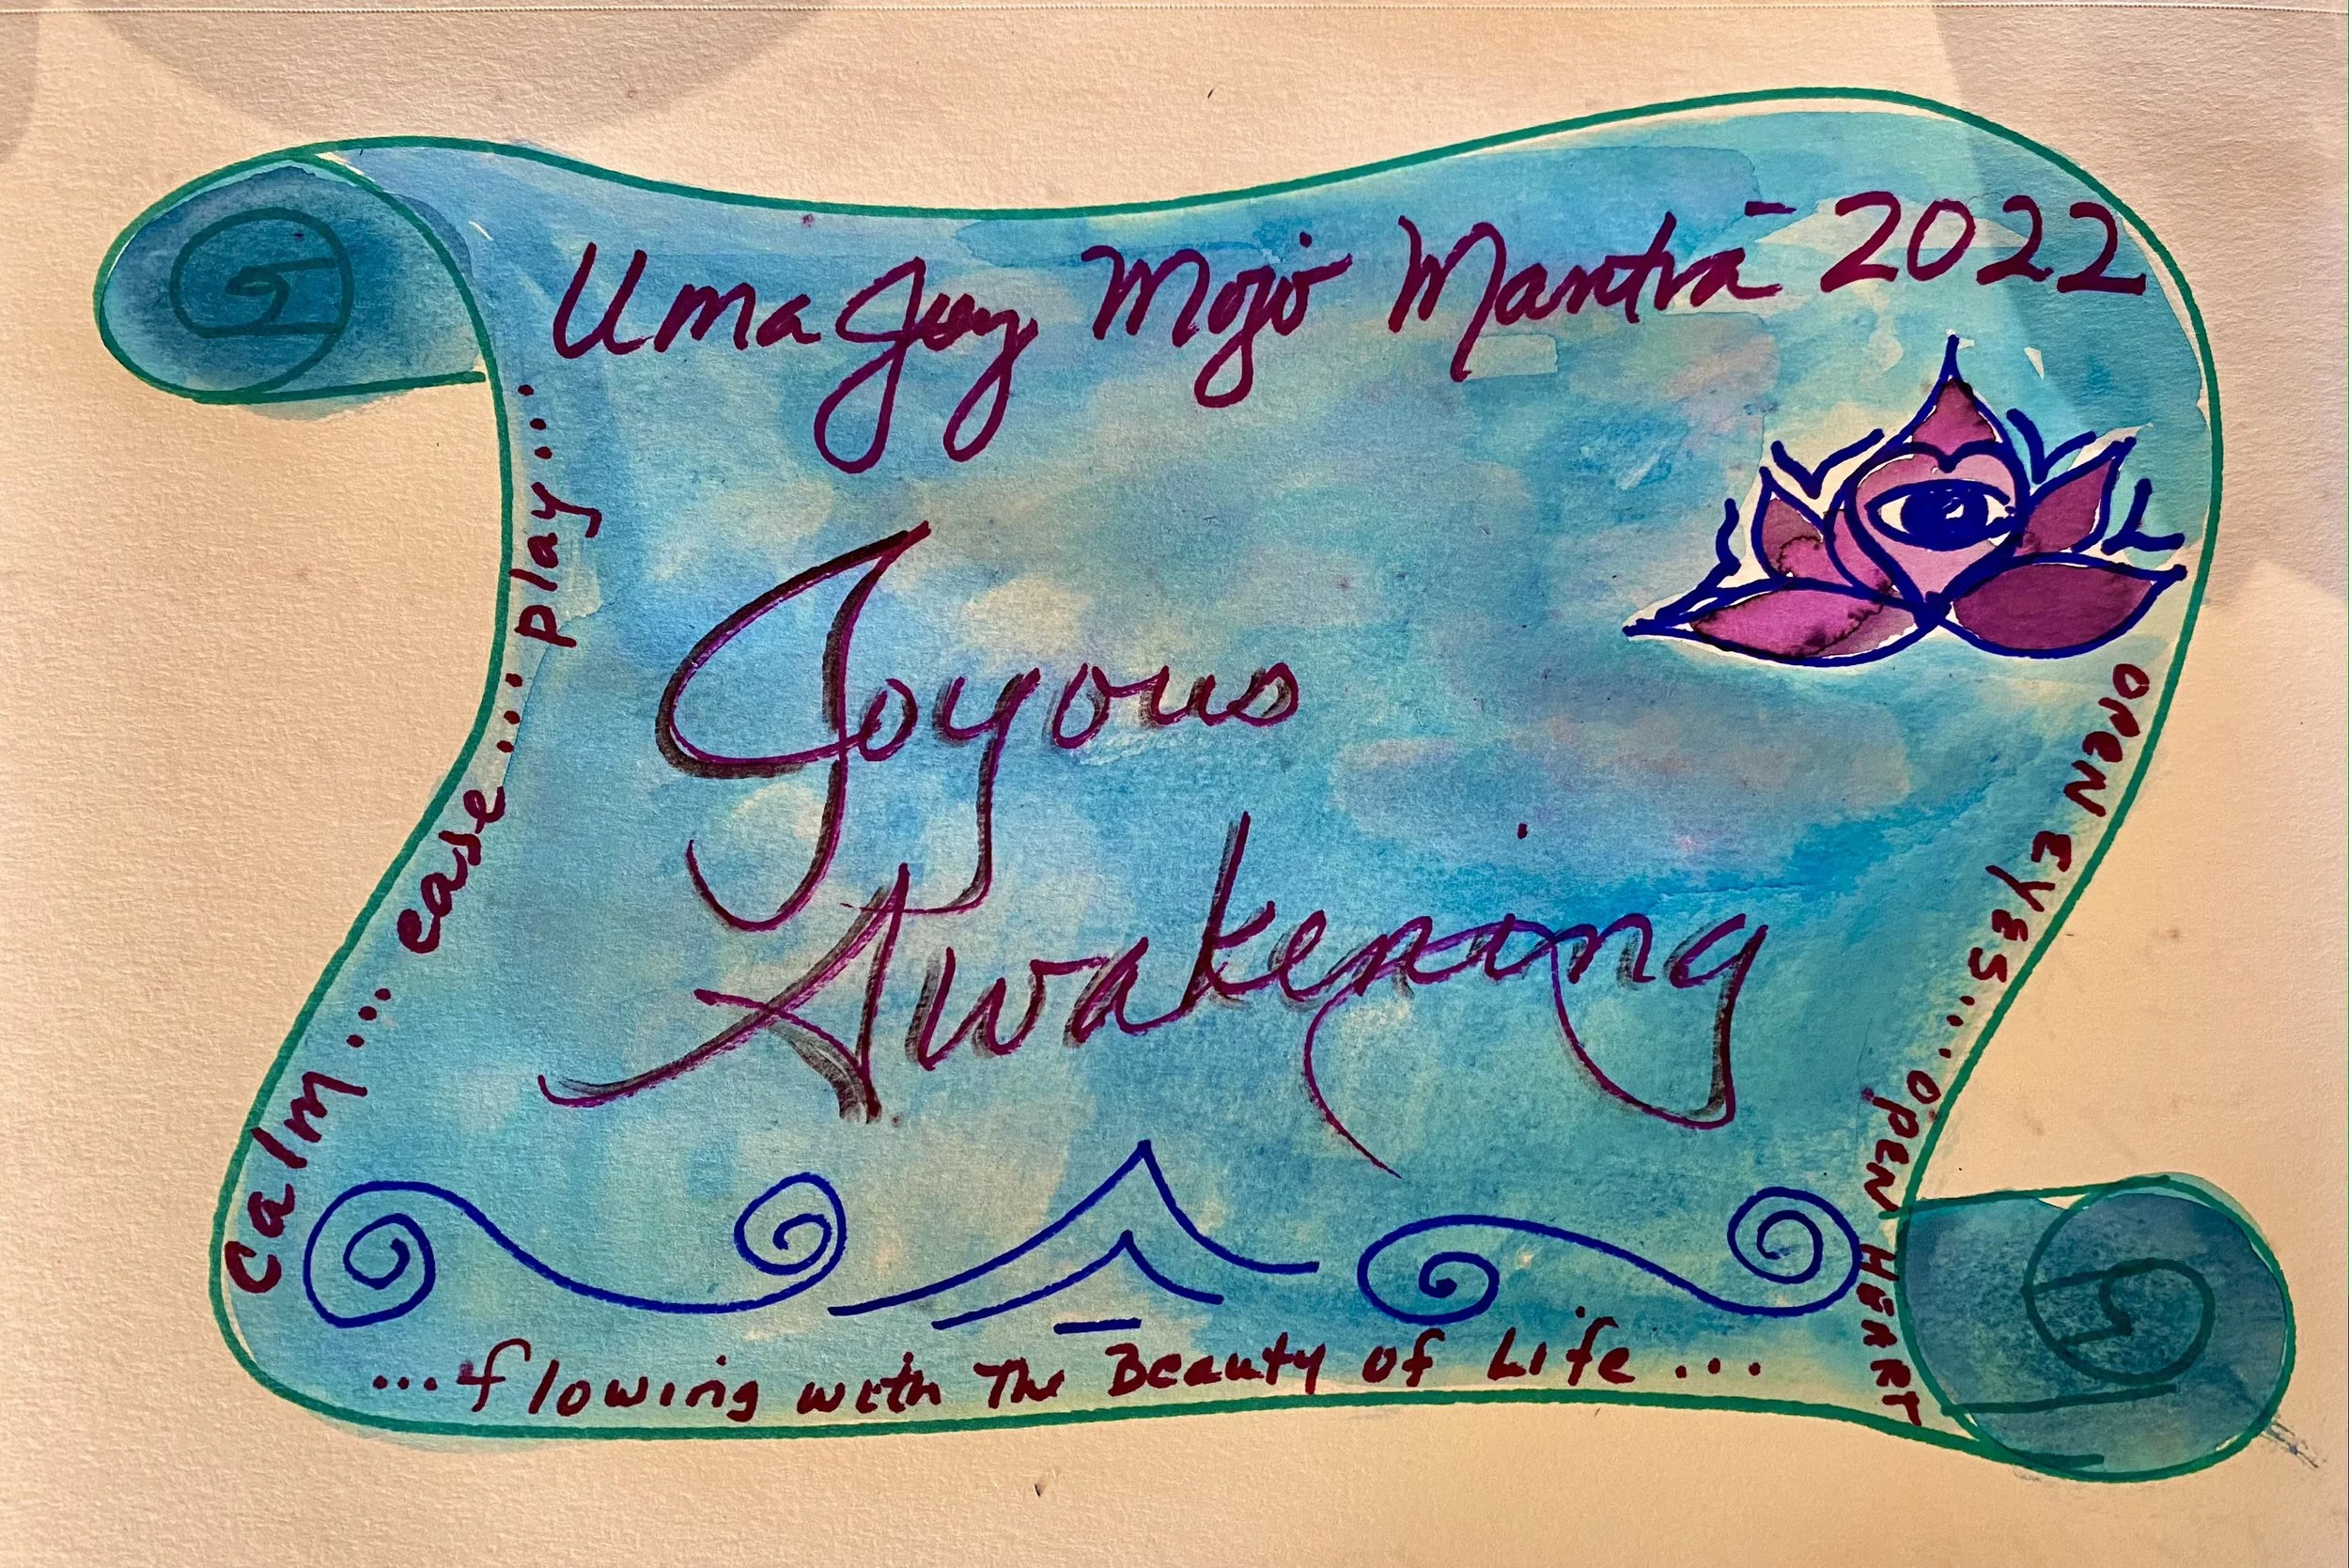 Uma Joy Mojo Mantra - 2022
Joyous
Awakening
calm... ease... play...
...flowing with The Beauty of Life...
OPEN EYES... OPEN HEART